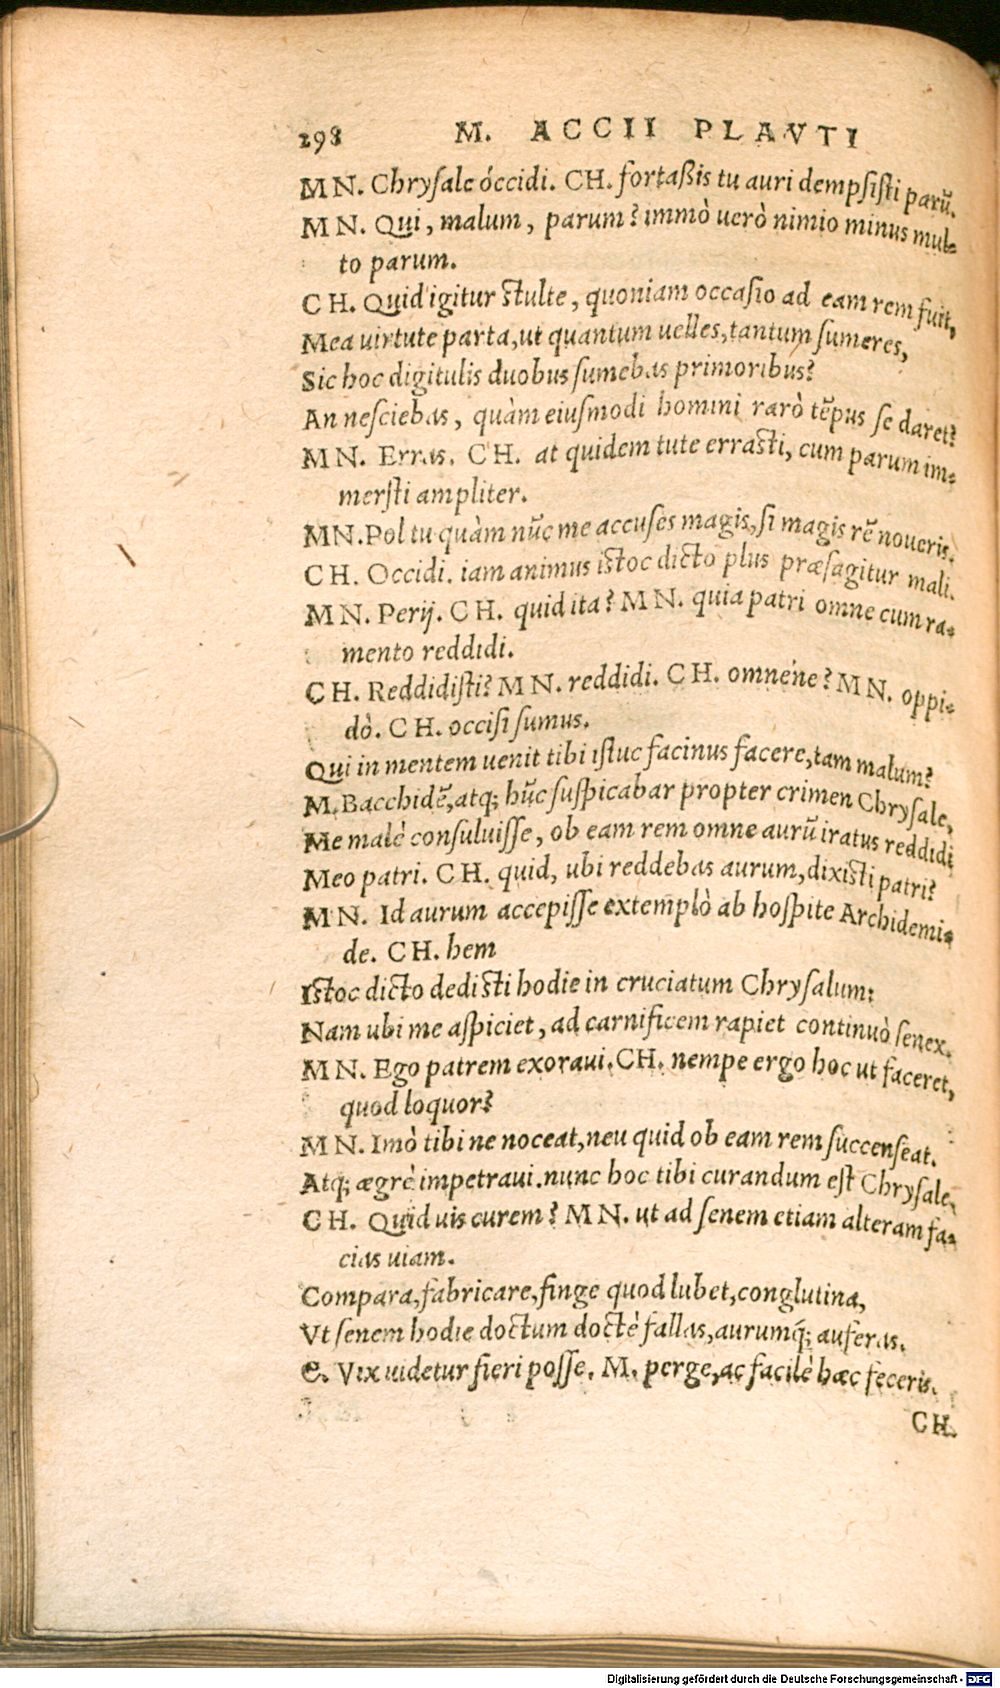 298 M. ACCII PLAVTI
MN. Chryſale óccidi. CH. fortaßis tu auri dempſiſti parū.
MN. Qui, malum, parum? immò uerò nimio minus mul-
to parum.
CH. Quid igitur ſtulte, quoniam occaſio ad eam rem fuit,
Mea uirtute parta, ut quantum uelles, tantum ſumeres,
Sic hoc digitulis duobus ſumebas primoribus?
An neſciebas, quàm eiuſmodi homini rarò tēpus ſe daret?
MN. Erras. CH. at quidem tute erraſti, cum parum im-
merſti ampliter.
MN. Pol tu quàm nūc me accuſes magis, ſi magis rē noueris.
CH. Occidi. iam animus iſtoc dicto plus præſagitur mali.
MN. Perij. CH. quid ita? MN. quia patri omne cum ra-
mento reddidi.
CH. Reddidiſti? MN. reddidi. CH. omnéne? MN. oppi-
dò. CH. occiſi ſumus.
Qui in mentem uenit tibi iſtuc facinus facere, tam malum?
M. Bacchidē, atq; hūc ſuſpicabar propter crimen Chryſale,
Me malè conſuluiſſe, ob eam rem omne aurū iratus reddidi
Meo patri. CH. quid, ubi reddebas aurum, dixiſti patri?
MN. Id aurum accepiſſe extemplò ab hoſpite Archidemi-
de. CH. hem
Iſtoc dicto dediſti hodie in cruciatum Chryſalum:
Nam ubi me aſpiciet, ad carnificem rapiet continuò ſenex.
MN. Ego patrem exoraui. CH. nempe ergo hoc ut faceret,
quod loquor?
MN. Imò tibi ne noceat, neu quid ob eam rem ſuccenſeat.
Atq; ægrè impetraui. nunc hoc tibi curandum eſt Chryſale.
CH. Quid uis curem? MN. ut ad ſenem etiam alteram fa-
cias uiam.
Compara, fabricare, finge quod lubet, conglutina,
Vt ſenem hodie doctum doctè fallas, aurumq́; auferas.
C. Vix uidetur fieri poſſe. M. perge, ac facilè hæc feceris.
CH.
Digitalisierung gefördert durch die Deutsche Forschungsgemeinschaft - DFG